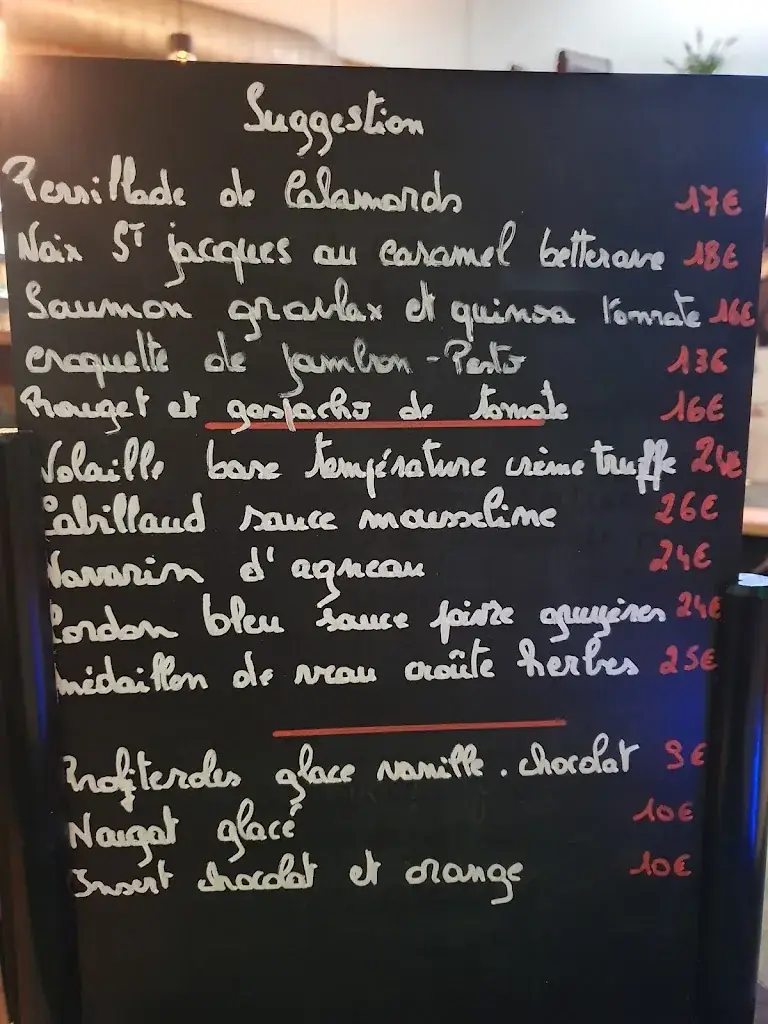 Suggestion
Persillade de Calamards 17€
Noix ST jacques au caramel betterave 18€
Saumon gravlax et quinoa tomate 16€
croquette de jambon - Pesto 13€
Rouget et gaspacho de tomate 16€
Volaille base température crème truffe 24€
Cabillaud sauce mousseline 26€
Navarin d'agneau 24€
Cordon bleu sauce poivre gruyères 24€
médaillon de veau croûte herbes 25€
Profiteroles glace vanille . chocolat 9€
Nougat glacé 10€
Insert chocolat et orange 10€